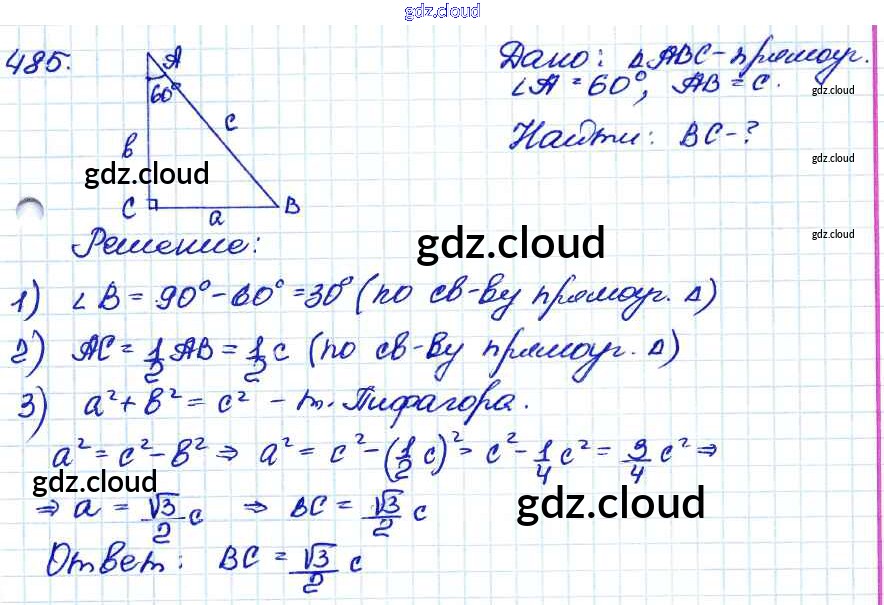 gdz.cloud
485.
A
60°
c
b
gdz.cloud
C
a
B
Дано: △ABC - прямоуг.
∠A = 60°, AB = c.
gdz.cloud
Найти: BC - ?
gdz.cloud
gdz.cloud
Решение:
gdz.cloud
1) ∠B = 90° - 60° = 30° (по св-ву прямоуг. △)
2) AC = 1/2 AB = 1/2 c (по св-ву прямоуг. △)
3) a² + b² = c² - т. Пифагора.
a² = c² - b² ⇒ a² = c² - (1/2 c)² = c² - 1/4 c² = 3/4 c² ⇒
gdz.cloud
⇒ a = √3/2 c ⇒ BC = √3/2 c
gdz.cloud
Ответ: BC = √3/2 c